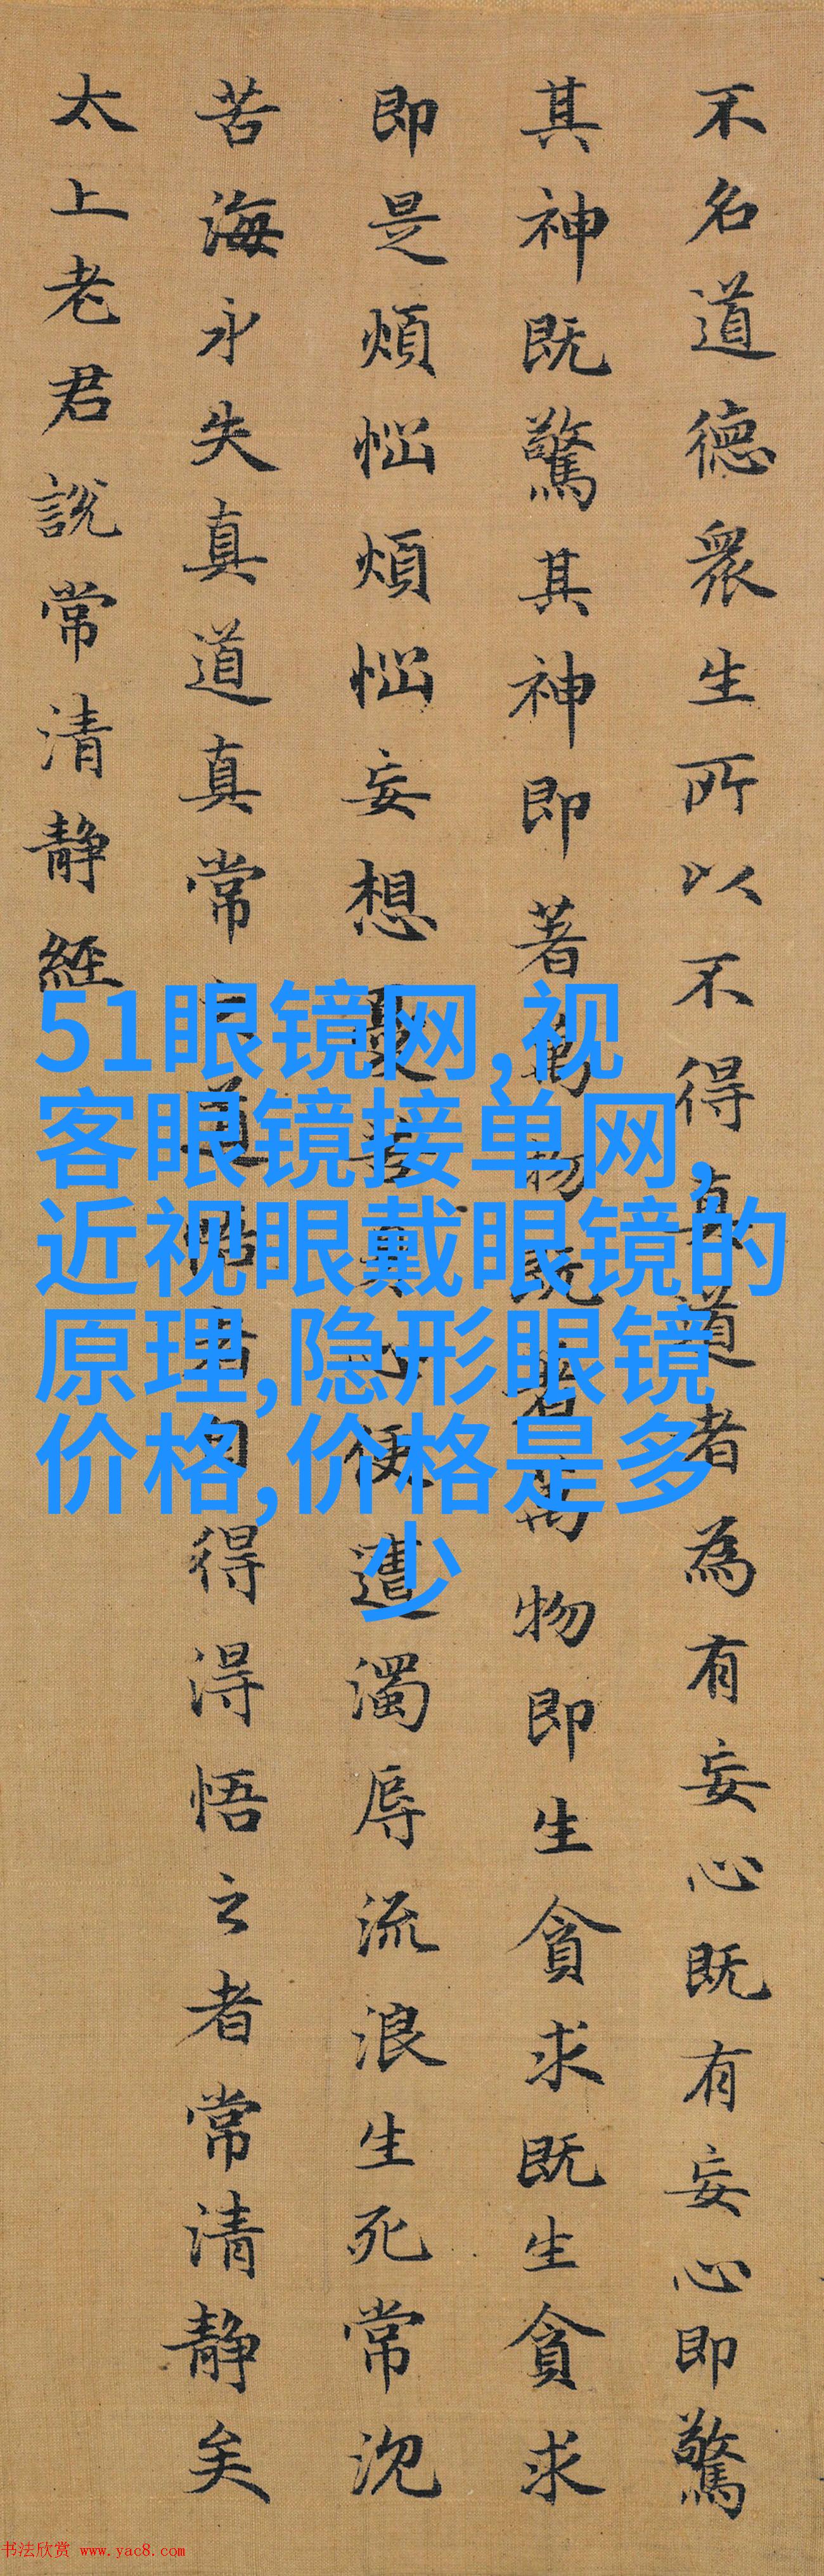 不名道德衆生所以不得真道者為有妄心既有妄心即驚
其神既驚其神即著萬物既著萬物即生貪求既生貪求
即是煩惱煩惱妄想憂苦身心便遭濁辱流浪生死常沉
苦海永失真道真常之道悟者自得淂悟之者常清静矣
太上老君說常清静經
51眼镜网,视
客眼镜接单网,
近视眼戴眼镜的
原理,隐形眼镜
价格,价格是多
少
书法欣赏 www.yac8.com